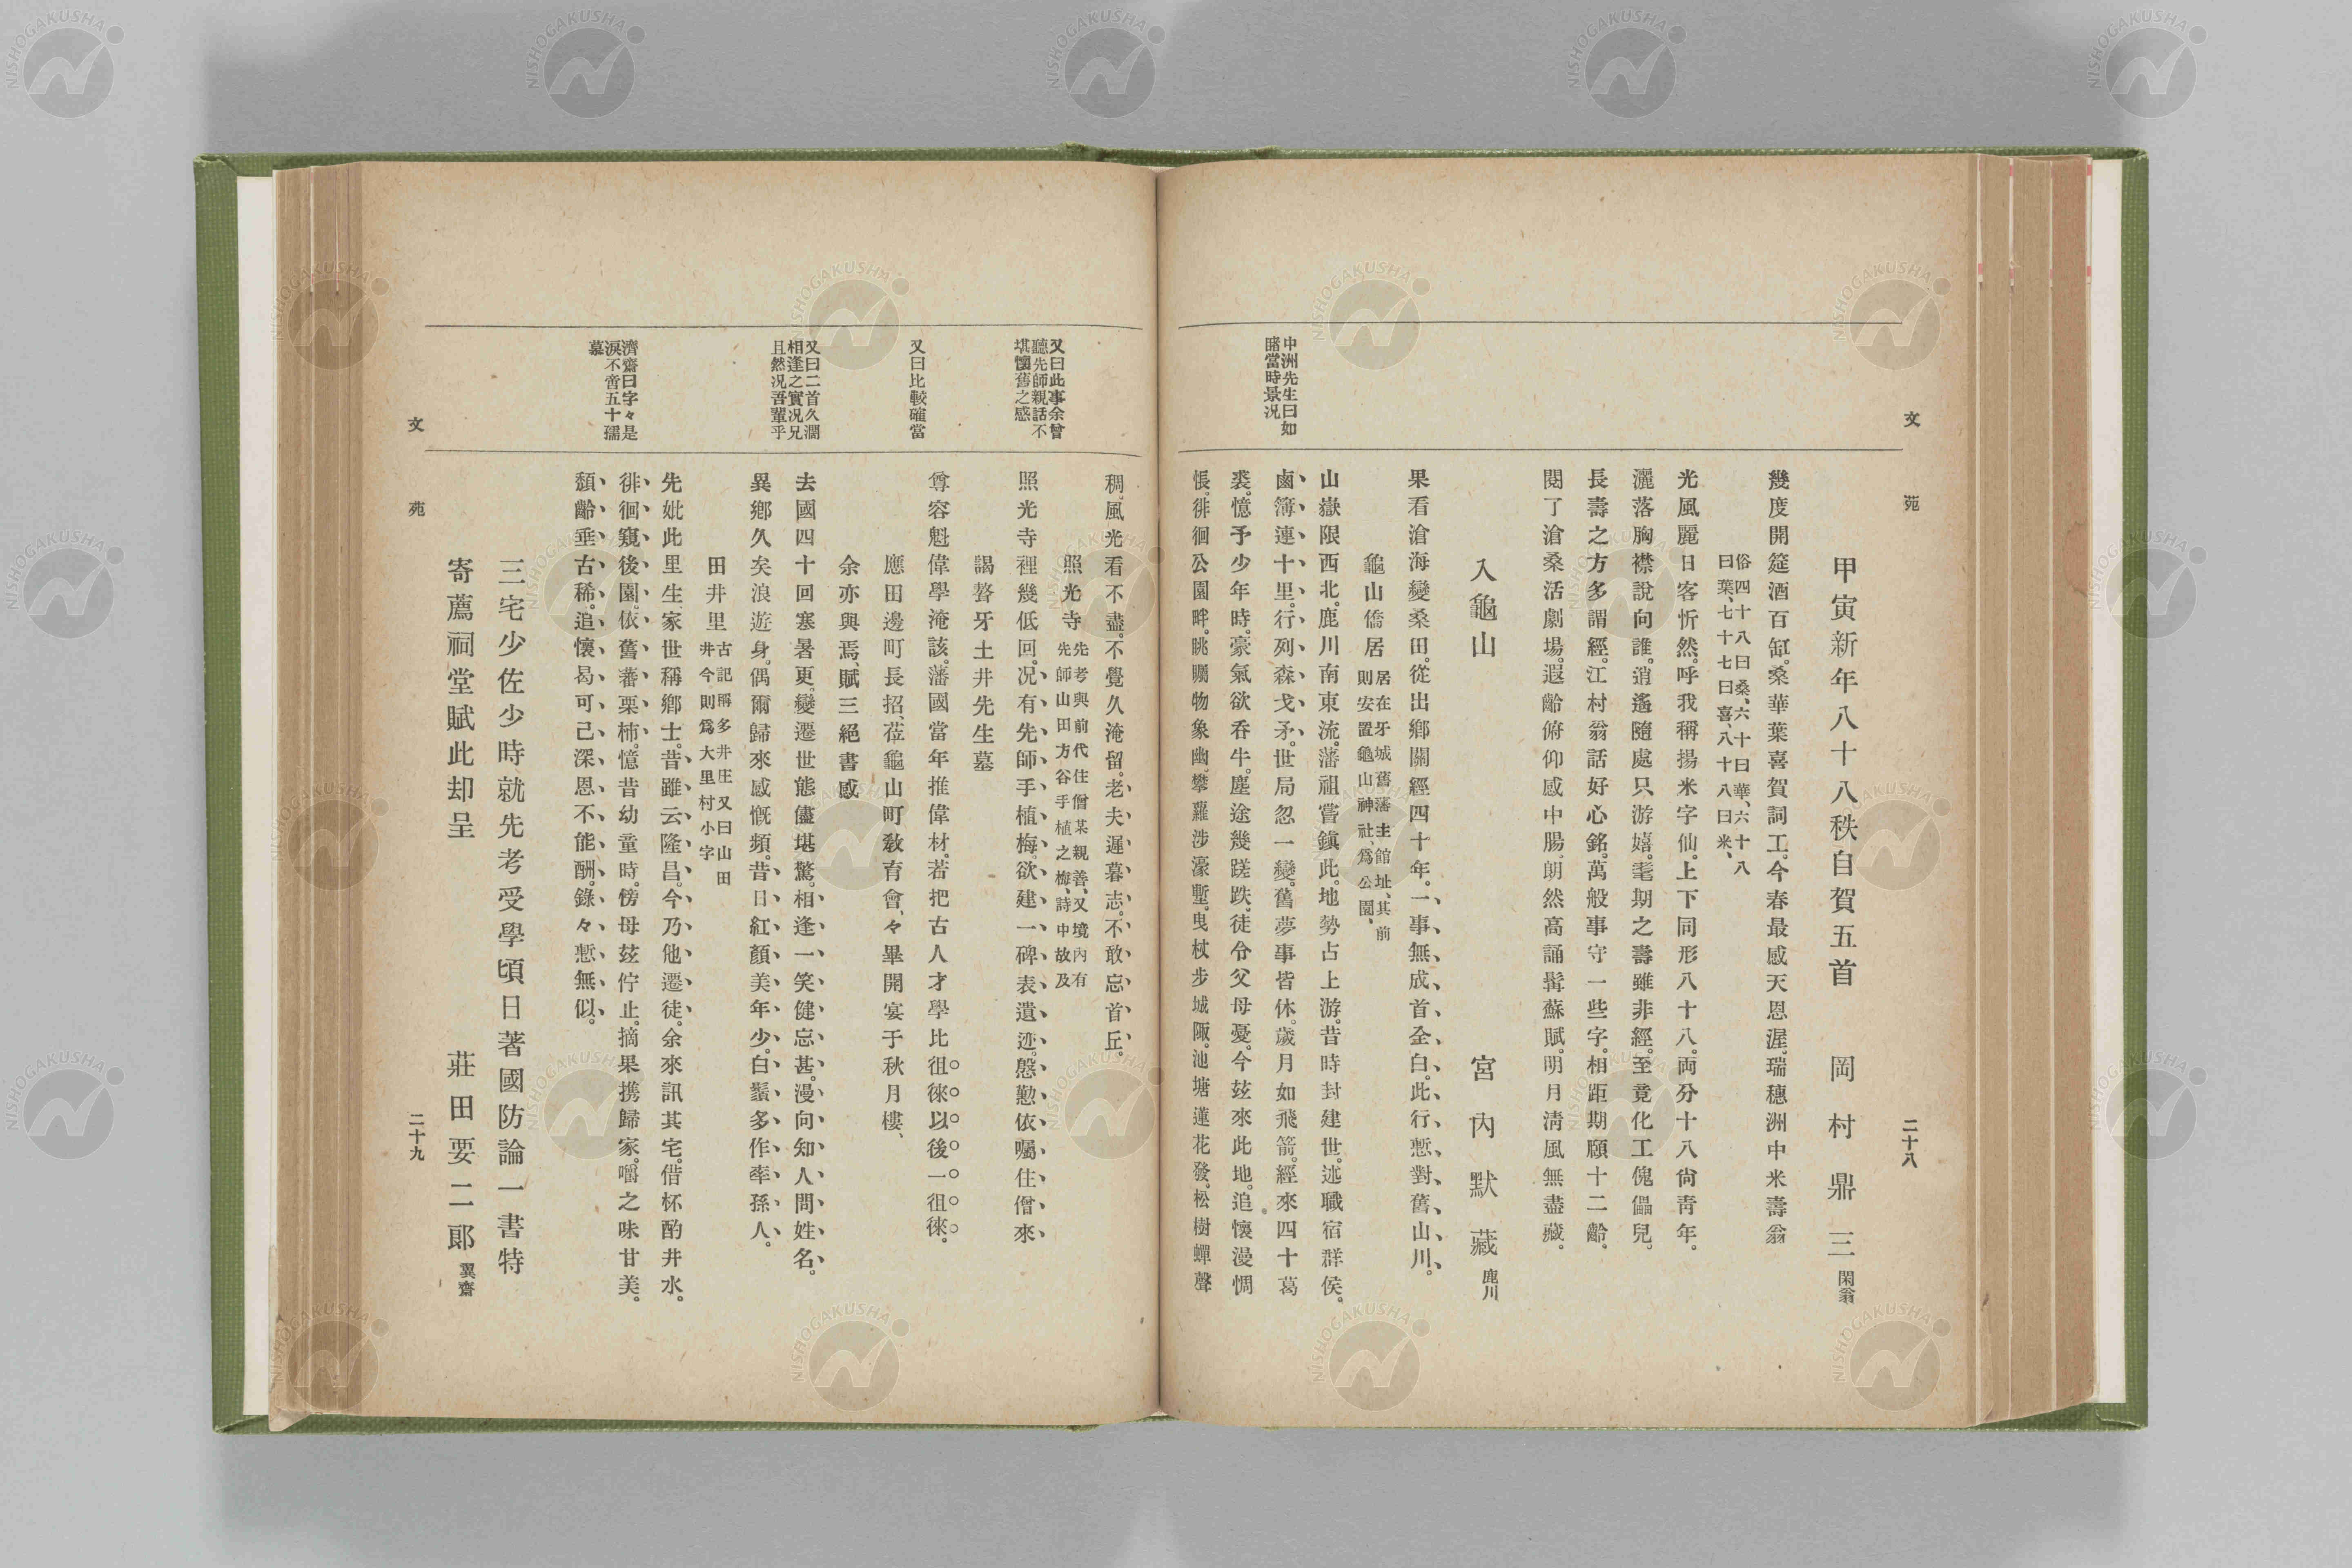 文苑
二十八
甲寅新年八十八秩自賀五首　岡村鼎三閑翁
幾度開筵酒百缸。桑華葉喜賀詞工。今春最感天恩渥。瑞穗洲中米壽翁
俗四十八曰桑、六十曰華、六十八
曰葉、七十七曰喜、八十八曰米、
光風麗日客忻然。呼我稱揚米字仙。上下同形八十八。両分十八尙靑年。
灑落胸襟說向誰。逍遙隨處只游嬉。耄期之壽雖非經。至竟化工傀儡兒。
長壽之方多謂經。江村翁話好心銘。萬般事守一些字。相距期願十二齡。
閱了滄桑活劇場。遐齡俯仰感中腸。朗然高誦髯蘇賦。明月淸風無盡藏。
入龜山　宮內默藏鹿川
果看滄海變桑田。從出鄕關經四十年。一事無成首全白。此行慙對舊山川。
龜山僑居
居在牙城舊藩主館址、其前
則安置龜山神社、爲公園、
山嶽限西北。鹿川南東流。藩祖嘗鎭此。地勢占上游。昔時封建世。述職宿群侯。
中洲先生曰如
睹當時景況
鹵簿連十里。行列森戈矛。世局忽一變。舊夢事皆休。歲月如飛箭。經來四十葛
裘。憶予少年時。豪氣欲呑牛。塵途幾蹉跌。徒令父母憂。今玆來此地。追懷漫惆
悵。徘徊公園畔。眺矚物象幽。攀蘿涉濠塹。曳杖步城陬。池塘蓮花發。松樹蟬聲
稠。風光看不盡。不覺久淹留。老夫遲暮志。不敢忘首丘。
照光寺
先考與前代住僧某親善、又境內有
先師山田方谷手植之梅、詩中故及
又曰此事余曾
聽先師親話不
堪懷舊之感
照光寺裡幾低回。况有先師手植梅。欲建一碑表遺迹。慇懃依囑住僧來
謁聱牙土井先生墓
又曰比較確當
尊容魁偉學淹該。藩國當年推偉材。若把古人才學比徂徠以後一徂徠。
應田邊町長招、莅龜山町敎育會、々畢開宴于秋月樓、
余亦與焉、賦三絕書感
又曰二首久濶
相逢之實況兄
且然況吾輩乎
去國四十回寒暑更。變遷世態儘堪驚。相逢一笑健忘甚。漫向知人問姓名。
異鄕久矣浪遊身。偶爾歸來感慨頻。昔日紅顏美年少。白鬚多作牽孫人。
田井里
古記稱多井庄又曰山田
井今則爲大里村小字
先妣此里生家世稱鄕士。昔雖云隆昌。今乃他遷徒。余來訊其宅。借杯酌井水。
濟齋曰字々是
淚不啻五十孺
慕
徘徊窺後園。依舊蕃栗柿。憶昔幼童時。傍母玆佇止。摘果携歸家。嚼之味甘美。
頽齡垂古稀。追懷曷可已。深恩不能酬。錄々慙無似。
三宅少佐少時就先考受學頃日著國防論一書特
寄薦祠堂賦此却呈　莊田要二郞翼齋
文苑
二十九